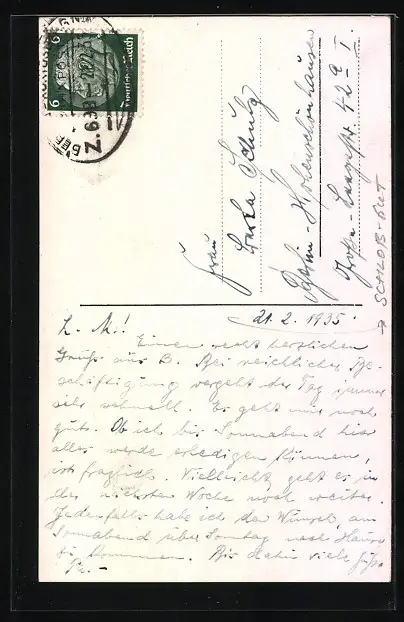 6 6
Deutsches Reich
Frau
Schulz
Berlin-Hohenschönhausen
42 a I
→ SCHLOß-GUT
21.2.1935
L. M.!
Einen recht herzlichen
Gruß aus B. Bei reichlicher Be-
schäftigung vergeht der Tag immer
sehr schnell. Es geht mir noch
gut. Ob ich bis Sonnabend hier
alles werde erledigen können,
ist fraglich. Vielleicht geht es in
der nächsten Woche noch weiter.
Jedenfalls habe ich den Wunsch, am
Sonnabend über Sonntag nach Hause
zu kommen. Bis dahin viele Grüße